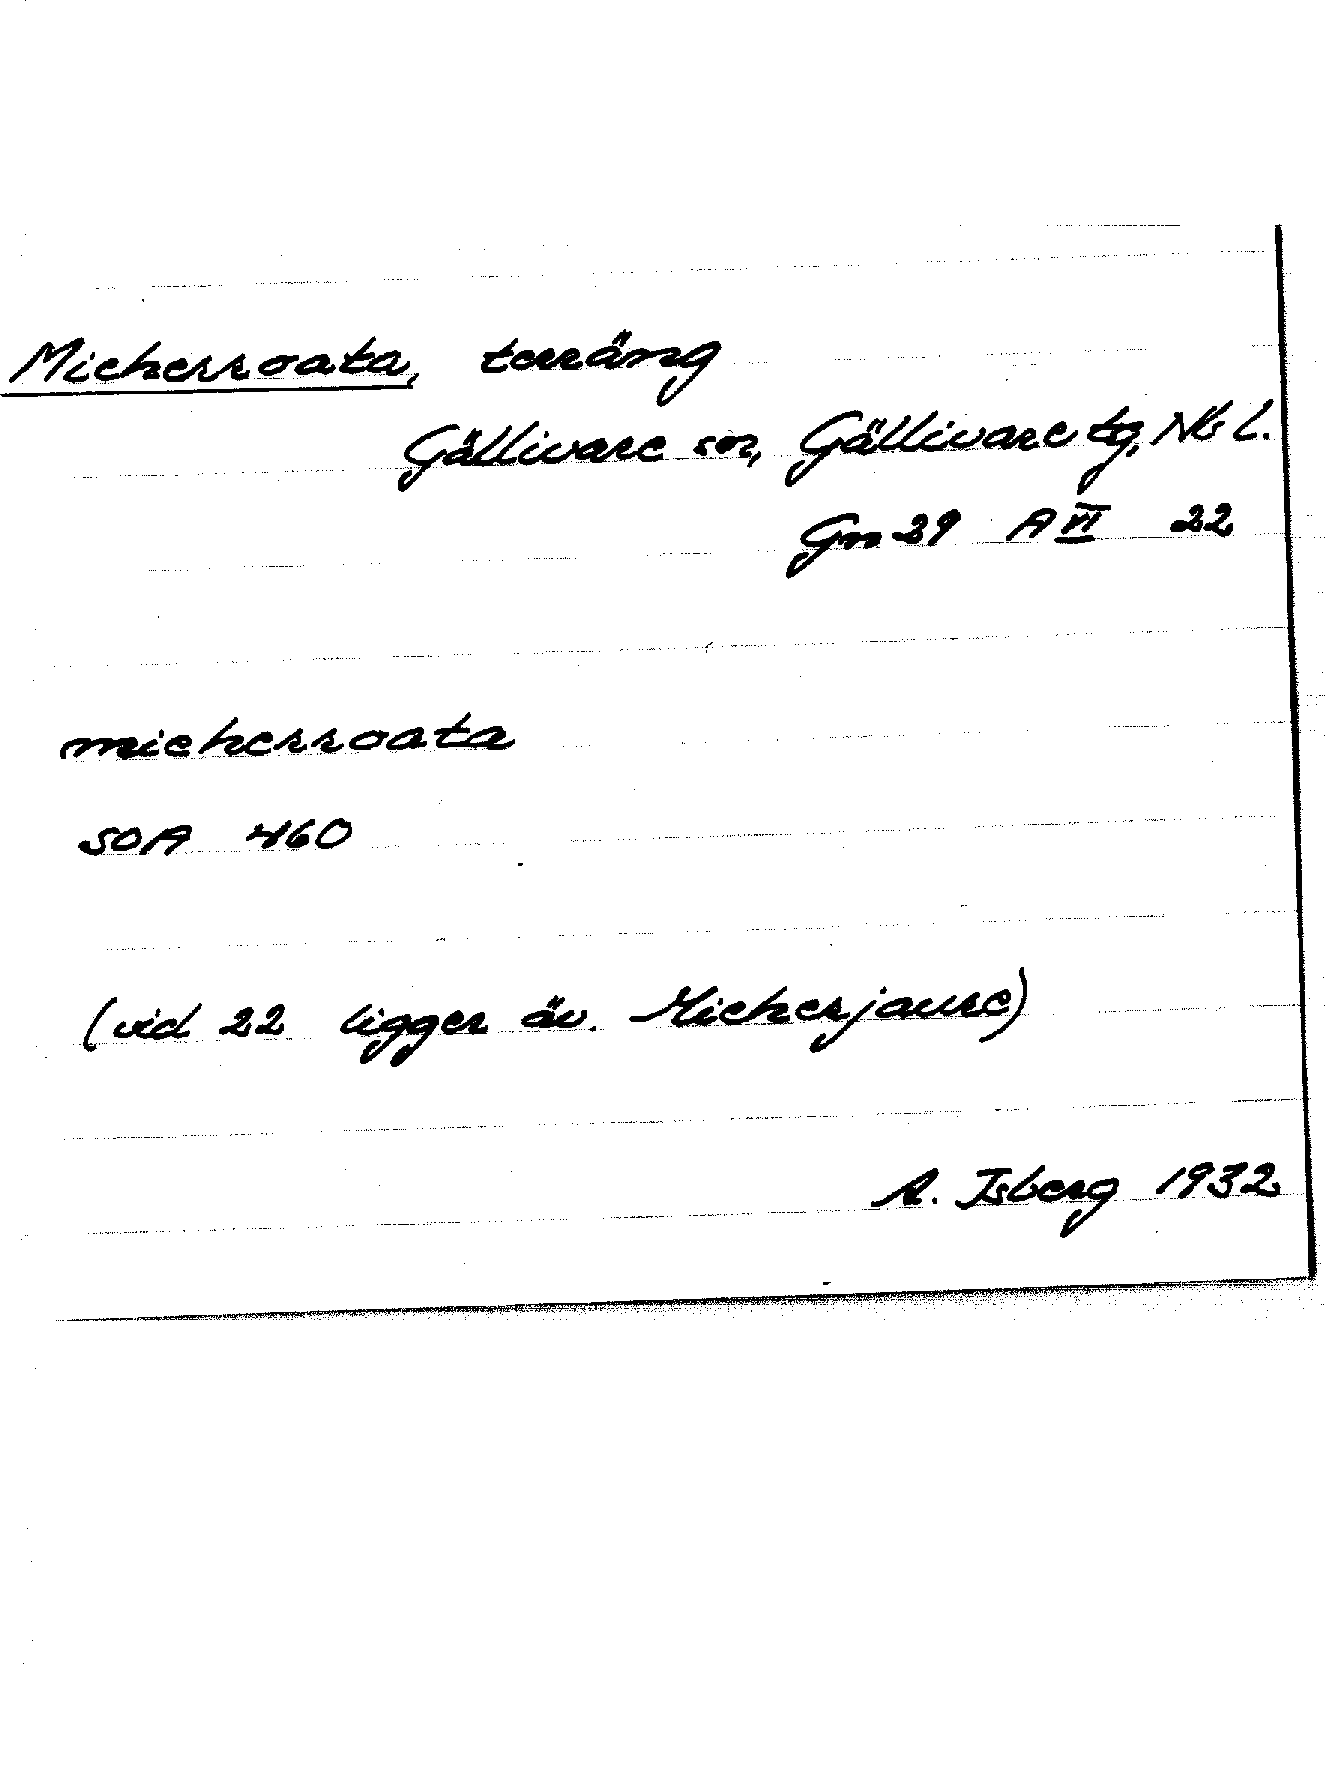 Mickerroata, terräng
Gällivare sn, Gällivare tg, Nb l.
Gn 29 A VI 22
mickerroata
SOA 460
(vid 22 ligger äv. Mickerjaure)
A. Isberg 1932